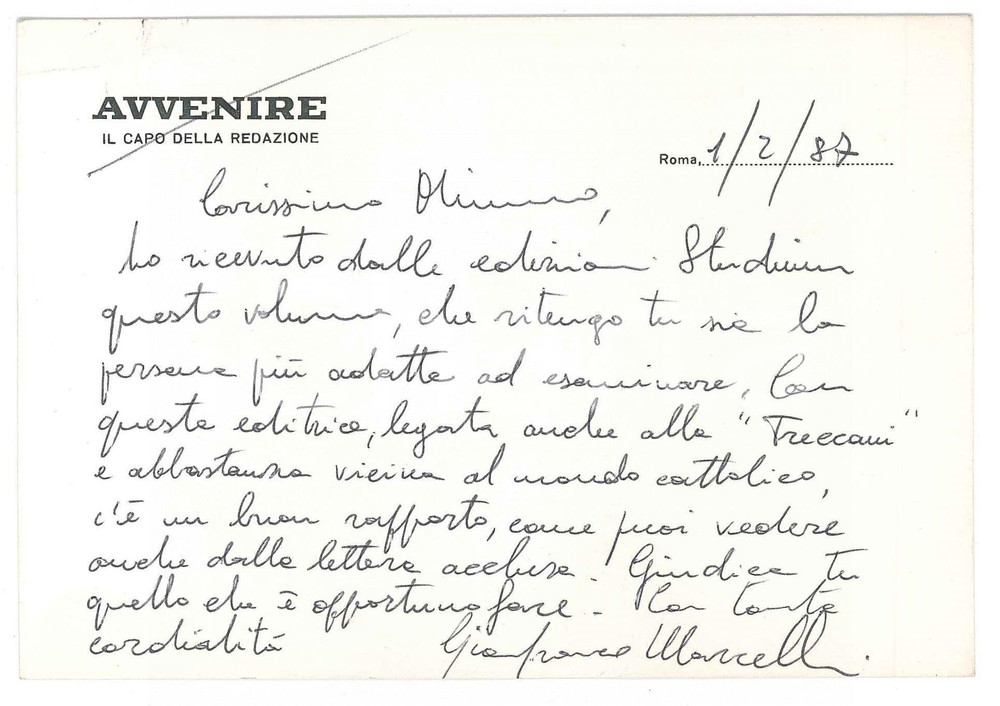 AVVENIRE
IL CAPO DELLA REDAZIONE
Roma, 1/2/87
Carissimo
ho ricevuto dalle edizioni Studium
questo volume, che ritengo tu sia la
persona più adatta ad esaminare. Con
questa editrice, legata anche alla "Treccani"
e abbastanza vicina al mondo cattolico,
c'è un buon rapporto, come puoi vedere
anche dalla lettera acclusa. Giudica tu
quello che è opportuno fare - Con tanta
cordialità Gianfranco Marcelli